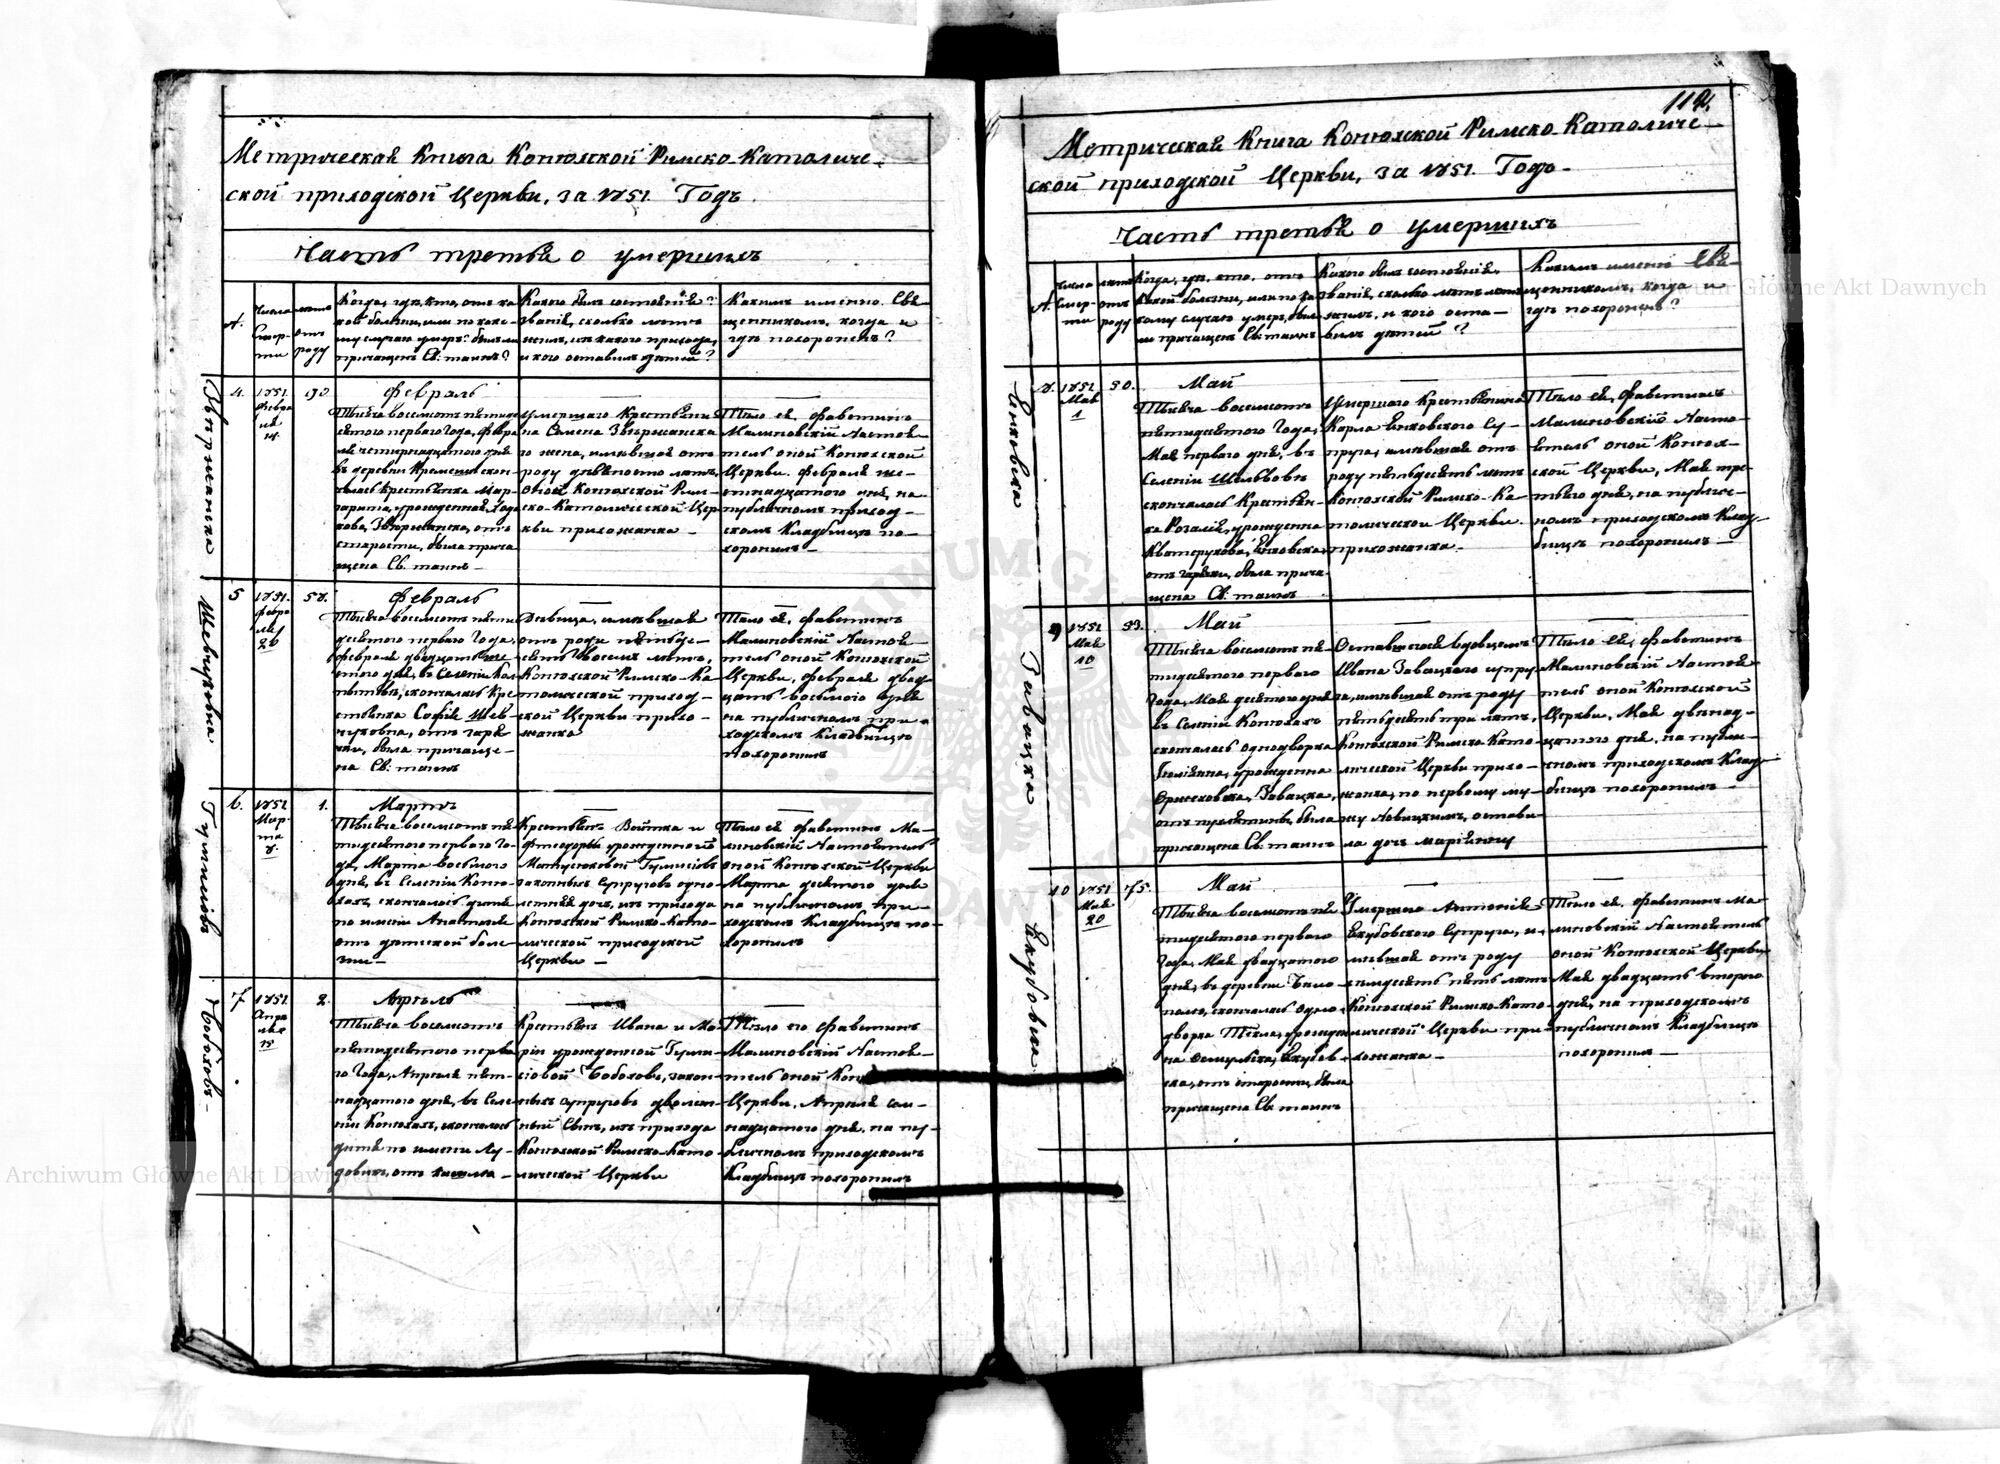 Метрическая Книга Конюхской Римско-Католиче-
ской приходской Церкви, за 1851 Годъ.
Часть третья о умершихъ
Числа Смер-ти
лѣтъ отъ роду
Когда, гдѣ, кто, отъ ка-
кой болѣзни, или по како-
му случаю умеръ? былъ ли
причащенъ Св: таинъ?
Какого былъ состоянія?
званія, сколько лѣтъ
жилъ, изъ какого прихода,
и кого оставилъ дѣтей?
Какимъ именно Свя-
щенникомъ, когда и
гдѣ похороненъ?
4.
1851
Февра
ля
14.
90
Февраль
Тысяча восемсотъ пятиде
сятого первого Года, Февра
ля четырнадцатого дня
въ деревни Кременце скон-
чалась Крестьянка Мар-
гарита, урожденная
отъ
старости, была прича
щена Св: таинъ –
умершаго Крестьяни-
на Семена
го жена, имѣвшая отъ
роду девяносто лѣтъ,
оной Конюхской Рим-
ско-Католической Цер
кви прихожанка –
Тѣло ея, Фаветинъ
Малиновскій Настоя
тель оной Конюхской
Церкви. Февраля ше-
стнадцатого дня, на
публичномъ приход-
скомъ Кладбищѣ по-
хоронилъ –
5
1851.
Февра
ля
26
58.
Февраль
Тысяча восемсотъ пяти
десятого первого Года,
Февраля двадцать ше
стого дня, въ Селеніи
скончалась Кре
стьянка Софія Шев-
чуковна, отъ горя
чки, была причаще-
на Св: таинъ
Шевчуковна.
Дѣвица, имѣвшая
отъ роду пятьде-
сятъ восемъ лѣтъ,
Конюхской Римско-Ка
толической приход-
ской Церкви прихо-
жанка
Тѣло ея, Фаветинъ
Малиновскій Настоя
тель оной Конюхской
Церкви, Февраля двад
цать восьмого дня
на публичномъ при-
ходскомъ Кладбищѣ
похоронилъ
6.
1851
Мар-
та
8
1.
Мартъ
Тысяча восемсотъ пя
тидесятого первого Го-
да, Марта восьмого
дня, въ Селеніи Коню-
хахъ, скончалась дитя
по имени Анастазія
отъ дѣтской болѣ
зни –
Крестьянъ Войтка и
Феодоры урожденной
законныхъ супруговъ одно-
лѣтняя дочь, изъ прихода
Конюхской Римско-Като-
лической приходской
Церкви –
Тѣло ея Фаветинъ Ма-
линовскій Настоятель
оной Конюхской Церкви
Марта десятого дня
на публичномъ при-
ходскомъ Кладбищѣ по-
хоронилъ
7
1851
Апрѣ
ля
15
2.
Апрѣль
Тысяча восемсотъ
пятидесятого перва
го Года, Апрѣля пят-
надцатого дня, въ Селе
ніи Конюхахъ, скончалось
дитя по имени Лу-
довикъ, отъ кашля –
Крестьянъ Ивана и Ма-
ріи урожденной
закон-
ныхъ супруговъ двухлѣт-
ный Сынъ, изъ прихода
Конюхской Римско-Като
лической Церкви
Тѣло его Фаветинъ
Малиновскій Настоя-
тель оной
Церкви, Апрѣля сем-
надцатого дня, на пу-
бличномъ приходскомъ
Кладбищѣ похоронилъ
114.
Метрическая Книга Конюхской Римско-Католиче-
ской приходской Церкви, за 1851. Годъ –
Часть третья о умершихъ
Числа Смер-ти
лѣтъ отъ роду
Когда, гдѣ, кто, отъ
какой болѣзни, или по ка
кому случаю умеръ, былъ
ли причащенъ Св: таинъ
Какого былъ состоянія,
званія, сколько лѣтъ
жилъ, и кого оста-
вилъ дѣтей?
Какимъ именно Свя-
щенникомъ, когда и
гдѣ похороненъ?
8.
1851
Мая
1
50.
Май
Тысяча восемсотъ
пятидесятого Года,
Мая первого дня, въ
Селеніи Шельвовѣ
скончалась Крестьян-
ка Розалія, урожденна
отъ горячки, была прича-
щена Св: таинъ
умершаго Крестьянина
Карла Янковского Су-
пруга, имѣвшая отъ
роду пятьдесятъ лѣтъ
Конюхской Римско-Ка-
толической Церкви
прихожанка –
Тѣло ея, Фаветинъ
Малиновскій Насто-
ятель оной Конюх-
ской Церкви, Мая тре-
тьяго дня, на публич-
номъ приходскомъ Клад-
бищѣ похоронилъ –
9
1851
Мая
10
53.
Май
Тысяча восемсотъ пя
тидесятого первого
Года, Мая десятого дня
въ Селеніи Конюхахъ
скончалась однодворка
Юліянна, урожденна
Завацка,
была
причащена Св: таинъ
Завацка
Оставшагося вдовцемъ
Ивана Завацкого супру
га, имѣвшая отъ роду
пятьдесятъ три лѣтъ,
Конюхской Римско-Като-
лической Церкви прихо-
жанка, по первому му-
жу Новицкимъ, остави-
ла дочь Маріянну
Тѣло ея, Фаветинъ
Малиновскій Настоя
тель оной Конюхской
Церкви, Мая двѣнад-
цатого дня, на публи-
чномъ приходскомъ Клад
бищѣ похоронилъ –
10
1851
Мая
20
75.
Май
Тысяча восемсотъ пя
тидесятого первого
Года, Мая двадцатого
дня, въ деревни
скончалась одно-
дворка Текла, урожден
на
отъ старости, была
причащена Св: таинъ
Умершого Антонія
Якубовского Супруга, и-
мѣвшая отъ роду
семдесятъ пять лѣтъ
Конюхской Римско-Като-
лической Церкви при-
хожанка –
Тѣло ея, Фаветинъ Ма-
линовскій Настоятель
оной Конюхской Церкви
Мая двадцать второго
дня, на приходскомъ
публичномъ Кладбищѣ
похоронилъ –
Archiwum Główne Akt Dawnych
Archiwum Główne Akt Dawnych